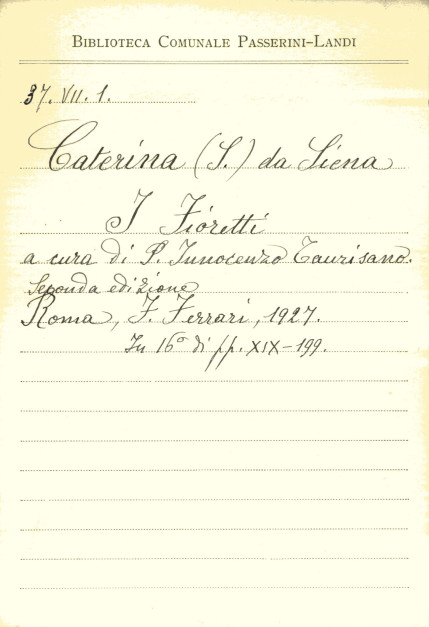 BIBLIOTECA COMUNALE PASSERINI-LANDI
37. VII. 1.
Caterina (S.) da Siena
I Fioretti
a cura di P. Innocenzo Taurisano.
Seconda edizione
Roma, F. Ferrari, 1927.
In 16° di pp. XIX-199.